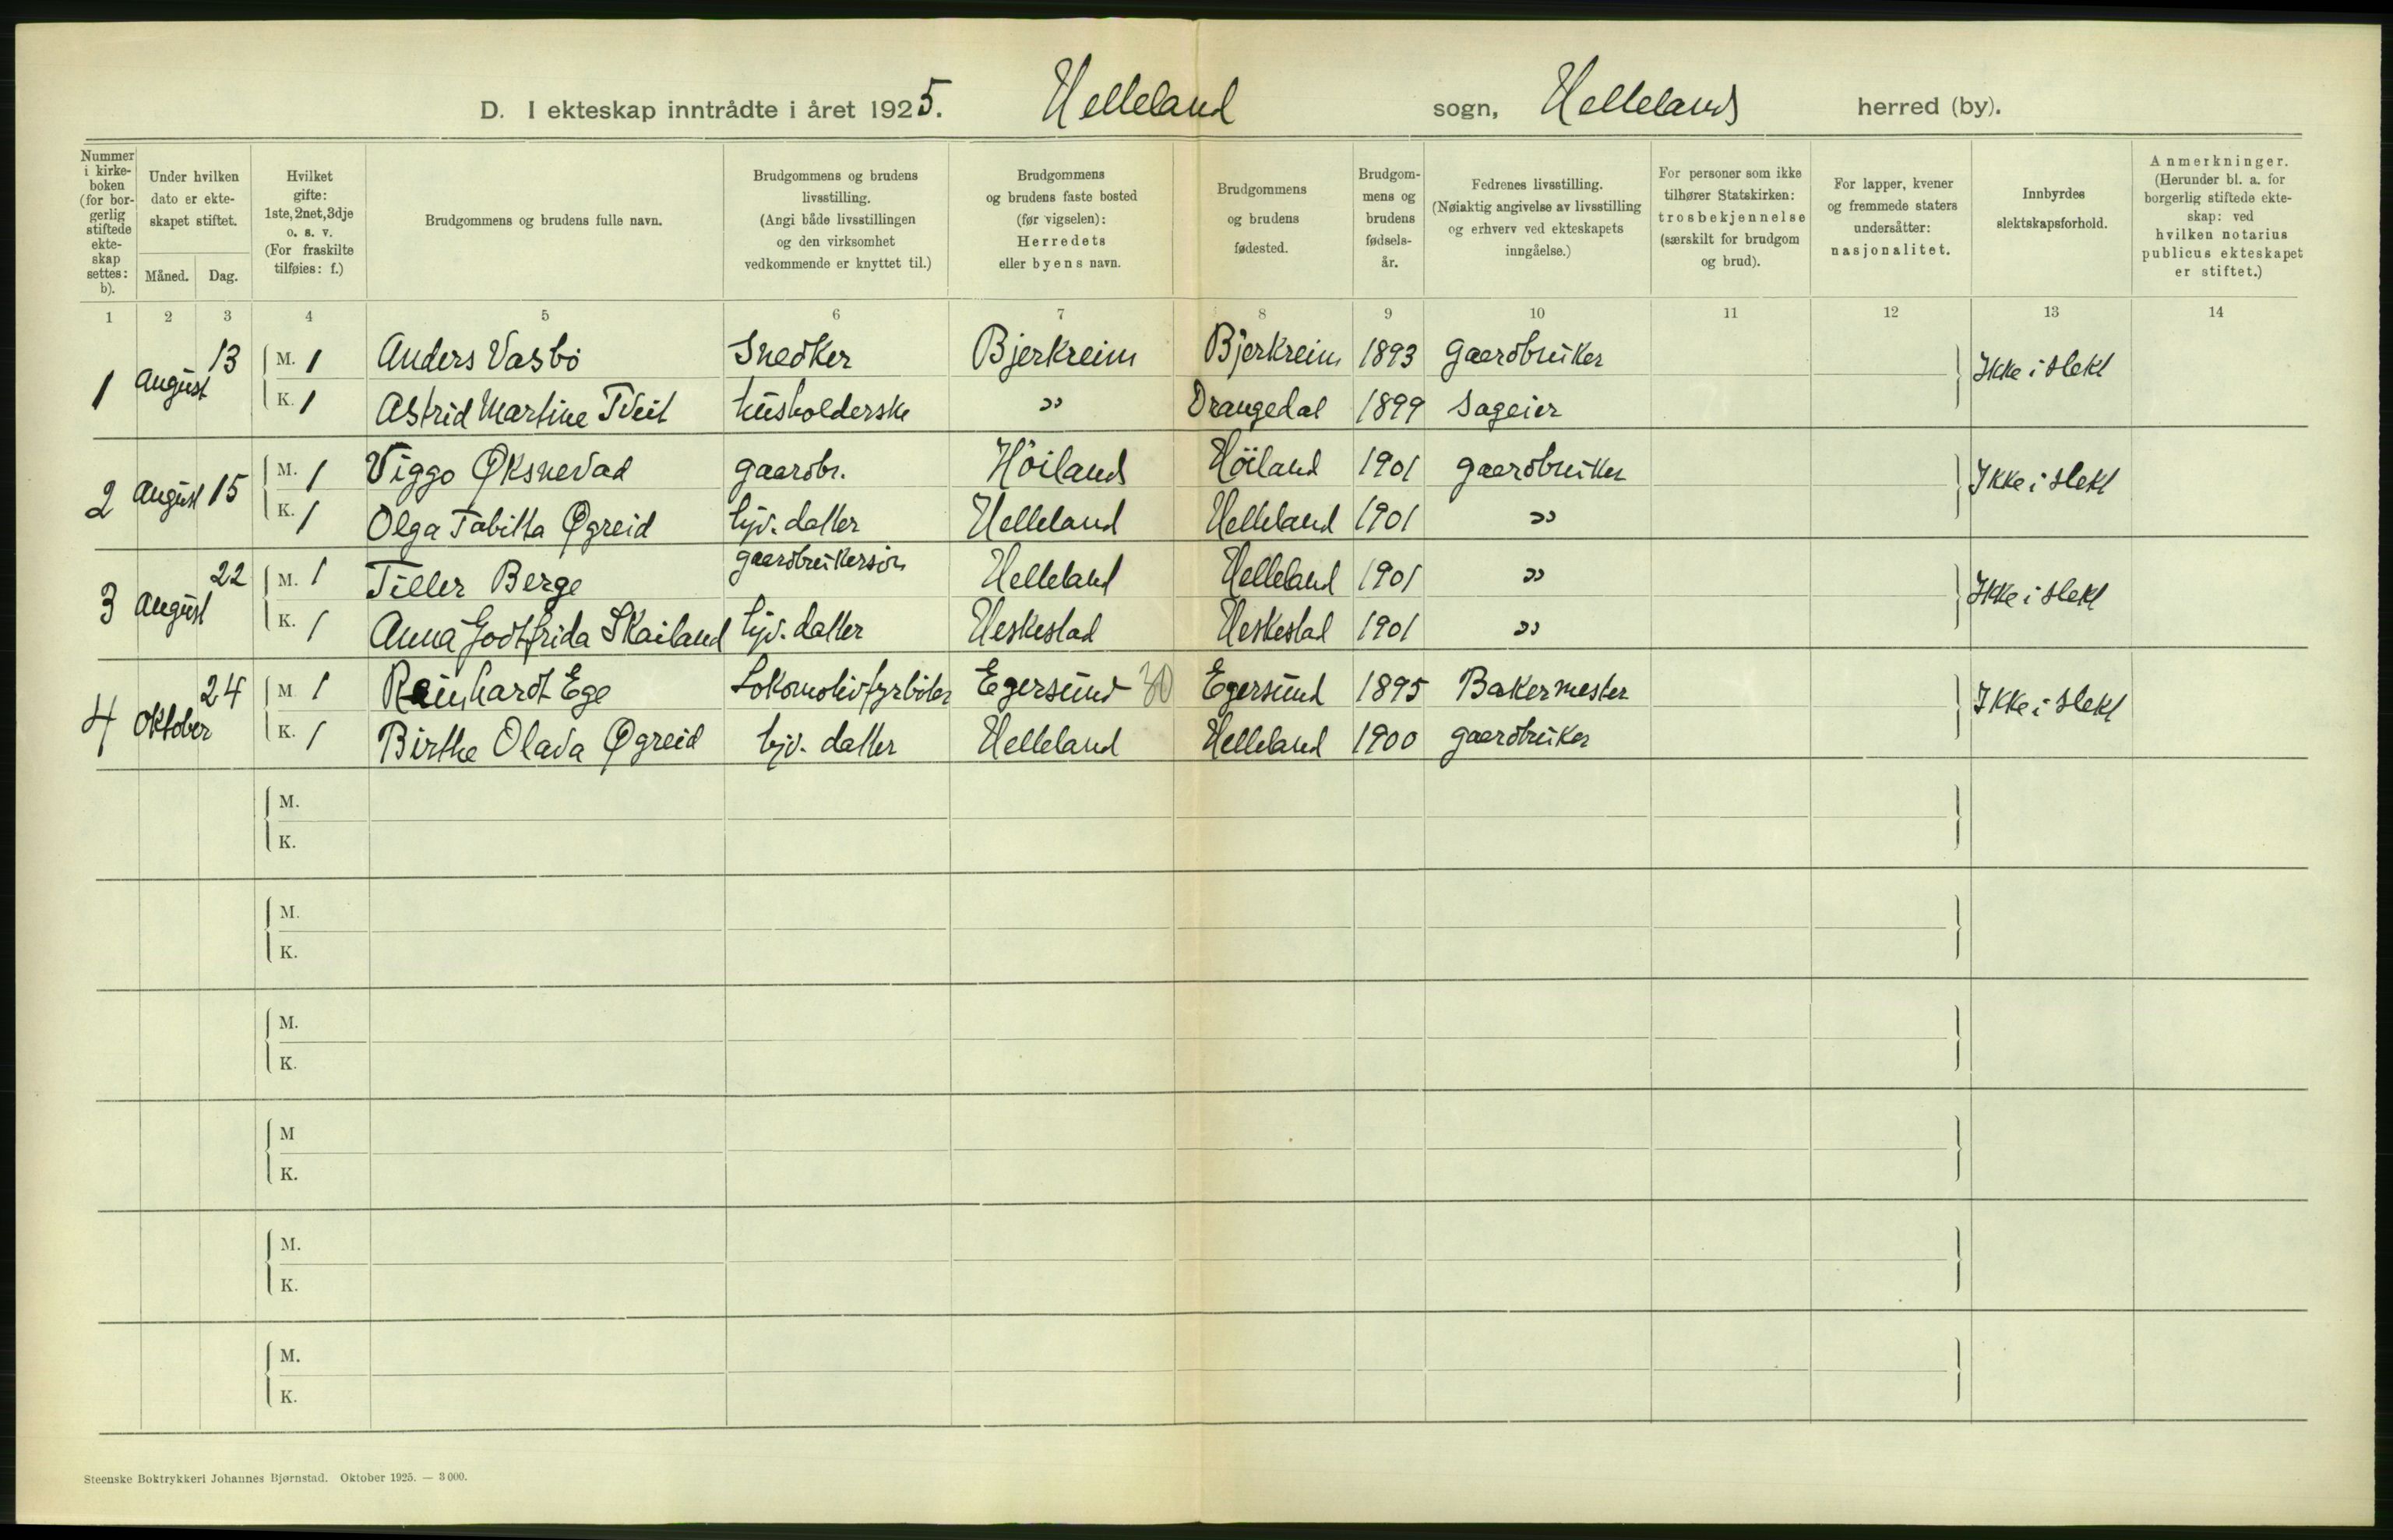 D. I ekteskap inntrådte i året 1925. Helleland sogn, Hellelands herred (by).
Nummer i kirke-boken (for bor-gerlig stiftede ekte-skap settes: b).
Under hvilken dato er ekte-skapet stiftet.
Måned. Dag.
Hvilket gifte: 1ste, 2net, 3dje o. s. v. (For fraskilte tilføies: f.)
Brudgommens og brudens fulle navn.
Brudgommens og brudens livsstilling. (Angi både livsstillingen og den virksomhet vedkommende er knyttet til.)
Brudgommens og brudens faste bosted (før vigselen): Herredets eller byens navn.
Brudgommens og brudens fødested.
Brudgom-mens og brudens fødsels-år.
Fedrenes livsstilling. (Nøiaktig angivelse av livsstilling og erhverv ved ekteskapets inngåelse.)
For personer som ikke tilhører Statskirken: trosbekjennelse (særskilt for brudgom og brud).
For lapper, kvener og fremmede staters undersåtter: nasjonalitet.
Innbyrdes slektskapsforhold.
Anmerkninger. (Herunder bl. a. for borgerlig stiftede ekte-skap: ved hvilken notarius publicus ekteskapet er stiftet.)
1 2 3 4 5 6 7 8 9 10 11 12 13 14
1 August 13 M. 1 Anders Vasbö Snedker Bjerkreim Bjerkreim 1893 Gaardbruker Ikke i slekt
K. 1 Astrid Martine Tveit husholderske " Drangedal 1899 Sageier
2 August 15 M. 1 Viggo Øksnevad gaardbr. Höiland Höiland 1901 gaardbruker Ikke i slekt
K. 1 Olga Tabitta Øgreid hjv. datter Helleland Helleland 1901 "
3 August 22 M. 1 Teller Berge gaardbrukersön Helleland Helleland 1901 " Ikke i slekt
K. 1 Anna Godtfrida Skailand hjv. datter Heskestad Heskestad 1901 "
4 Oktober 24 M 1 Reinhardt Ege Lokomotivfyrböter Egersund 30 Egersund 1895 Bakermester Ikke i slekt
K. 1 Birthe Olava Øgreid hjv. datter Helleland Helleland 1900 gaardbruker
M.
K.
M.
K.
M.
K.
M
K.
M.
K.
M.
K.
Steenske Boktrykkeri Johannes Bjørnstad. Oktober 1925. — 3 000.